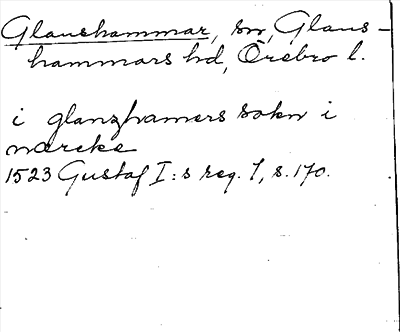 Glanshammar, sn, Glans-
hammars hd, Örebro l.
i glanzhamers sokn i
nærcke
1523 Gustaf I:s reg. 1, s. 170.